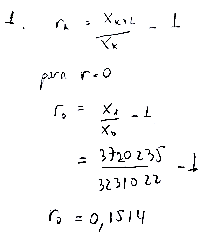 1. r_k = x_{k+1} / x_k - 1
para r=0
r_0 = x_1 / x_0 - 1
= 3720235 / 3231022 - 1
r_0 = 0,1514